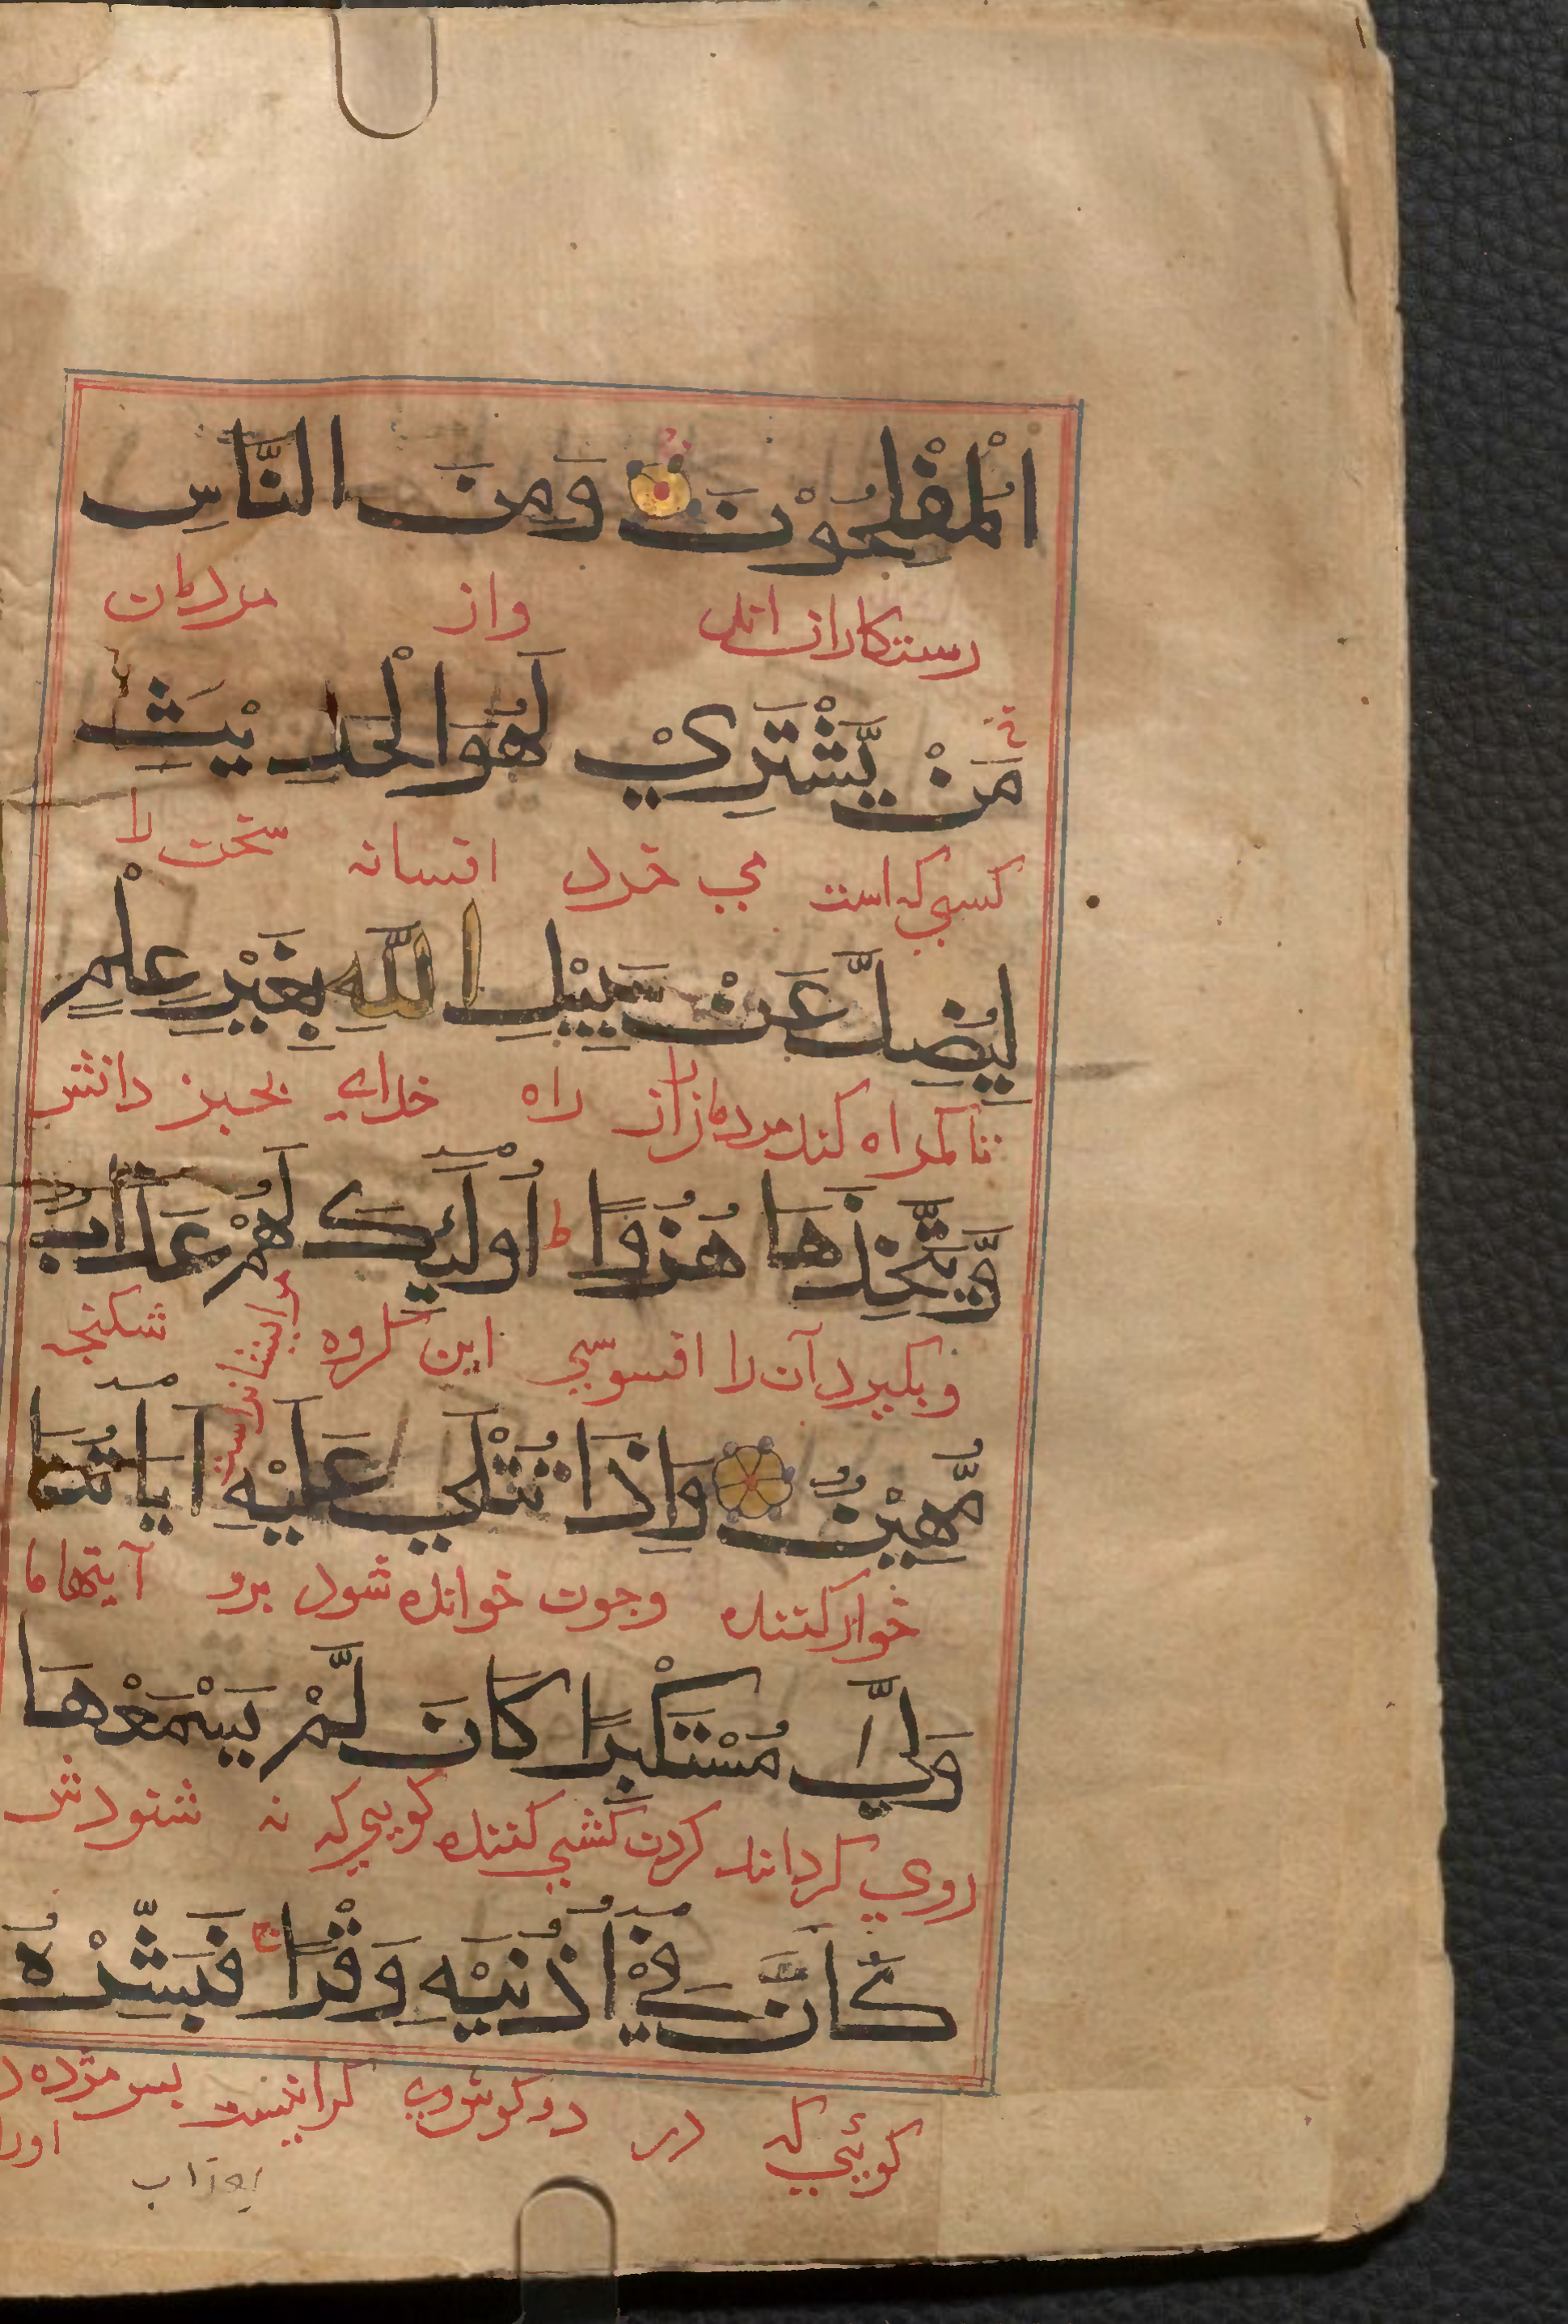 الْمُفْلِحُوْنَ وَمِنَ النَّاسِ
رستكاران اند واز مردمان
مَنْ يَّشْتَرِيْ لَهْوَ الْحَدِيْثِ
كسي كه است مي خرد افسانه سخن را
لِيُضِلَّ عَنْ سَبِيْلِ اللّٰهِ بِغَيْرِ عِلْمٍ
تا كمراه كند مردمانرا از راه خداي بجيز دانش
وَّيَتَّخِذَهَا هُزُوًا ط اُولٰٓئِكَ لَهُمْ عَذَابٌ
وبكيرد آن را افسوسي اين كروه مرايشانراست شكنجه
مُّهِيْنٌ وَاِذَا تُتْلٰي عَلَيْهِ اٰيَاتُنَا
خوار كننده وچون خوانده شود برو آيتها ما
وَلّٰي مُسْتَكْبِرًا كَانَ لَّمْ يَسْمَعْهَا
روي كرداند كردن كشي كننده كويي كه نه شنودش
كَاَنَّ فِيْٓ اُذُنَيْهِ وَقْرًا ج فَبَشِّرْهُ
كوئي كه در دو كوش وي كرانيست پس مژده د
اورا
بعذاب